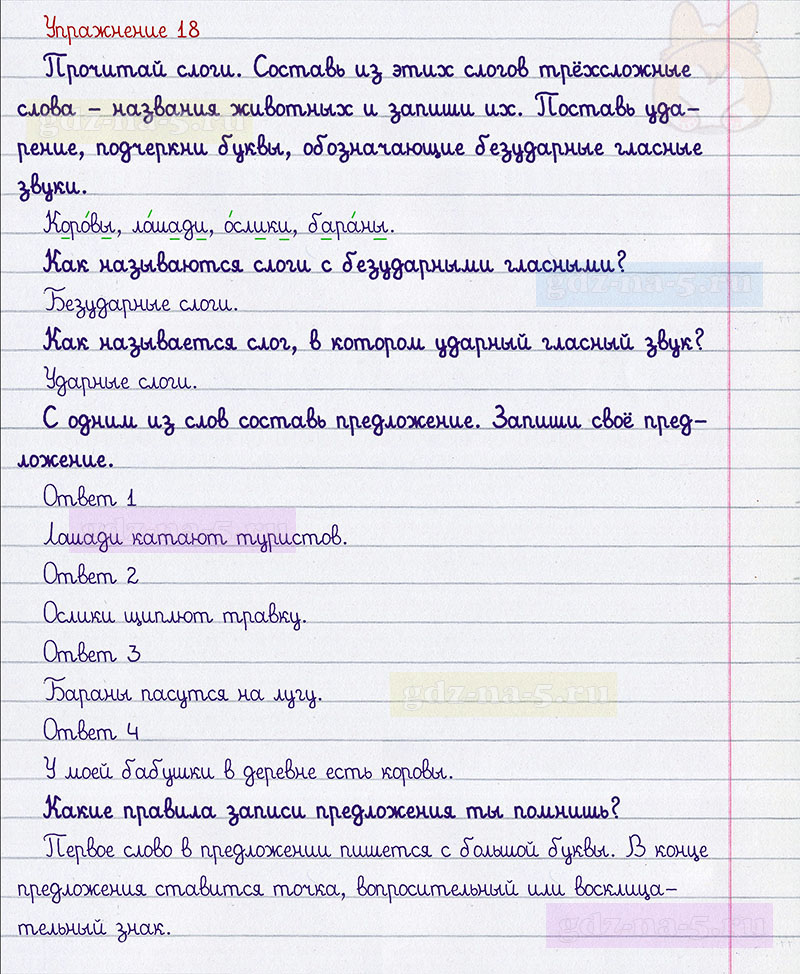 Упражнение 18
Прочитай слоги. Составь из этих слогов трёхсложные
слова – названия животных и запиши их. Поставь уда-
gdz-na-5.ru
рение, подчеркни буквы, обозначающие безударные гласные
звуки.
Коро́вы, ло́шади, о́слики, бара́ны.
Как называются слоги с безударными гласными?
gdz-na-5.ru
Безударные слоги.
Как называется слог, в котором ударный гласный звук?
Ударные слоги.
С одним из слов составь предложение. Запиши своё пред-
ложение.
Ответ 1
gdz-na-5.ru
Лошади катают туристов.
Ответ 2
Ослики щиплют травку.
Ответ 3
Бараны пасутся на лугу.
gdz-na-5.ru
Ответ 4
У моей бабушки в деревне есть коровы.
Какие правила записи предложения ты помнишь?
Первое слово в предложении пишется с большой буквы. В конце
предложения ставится точка, вопросительный или восклица-
тельный знак.
gdz-na-5.ru